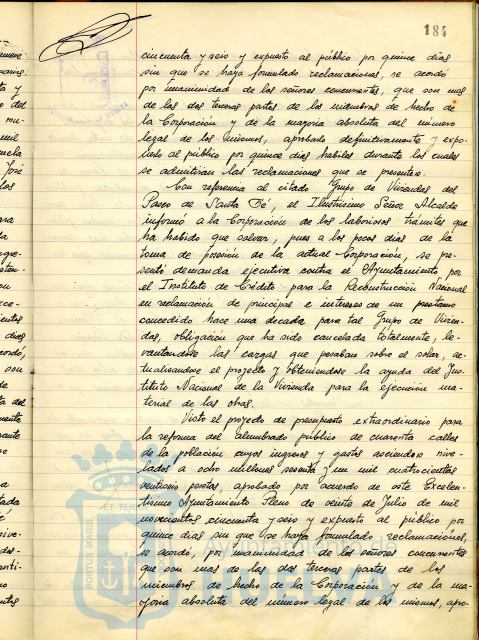 184
cincuenta y seis y expuesto al público por quince días
sin que se haya formulado reclamaciones, se acordo
por unanimidad de los señores concurrentes, que son mas
de las dos terceras partes de los miembros de hecho de
la Corporación y de la mayoria absoluta del número
legal de los mismos, aprobado definitivamente y expo-
nerlo al público por quince dias habiles durante los cuales
se admitiran las reclamaciones que se presenten.
Con referencia al citado Grupo de Viviendas del
Paseo de Santa Fé, el Ilustrisimo Señor Alcalde
informó a la Corporación de los laboriosos trámites que
ha habido que salvar, pues a los pocos dias de la
toma de posesión de la actual Corporación, se pre-
sentó demanda ejecutiva contra el Ayuntamiento por
el Instituto de Crédito para la Reconstrucción Nacional
en reclamación de principal e intereses de un prestamo
concedido hace una decada para tal Grupo de Vivien-
das, obligación que ha sido cancelada totalmente, le-
vantandose las cargas que pesaban sobre el solar, ac-
tualisandose el proyecto y obteniendose la ayuda del Ins-
tituto Nacional de la Vivienda para la ejecución ma-
terial de las obras.
Visto el proyecto de presupuesto extraordinario para
la reforma del alumbrado público de cuarenta calles
de la población cuyos ingresos y gastos ascienden nive-
lados a ocho millones sesenta y un mil cuatrocientas
ventiseis pesetas, aprobado por acuerdo de este Excelen-
tisimo Ayuntamiento Pleno de veinte de Julio de mil
novecientos cincuenta y seis y expuesto al público por
quince dias sin que se haya formulado reclamaciones,
se acordo, por unanimidad de los señores concurrentes
que son mas de las dos terceras partes de los
miembros de hecho de la Corporación y de la ma-
yoria absoluta del número legal de los mismos, apro-
PORTUS MARIS
ET TERRÆ
HUELVA